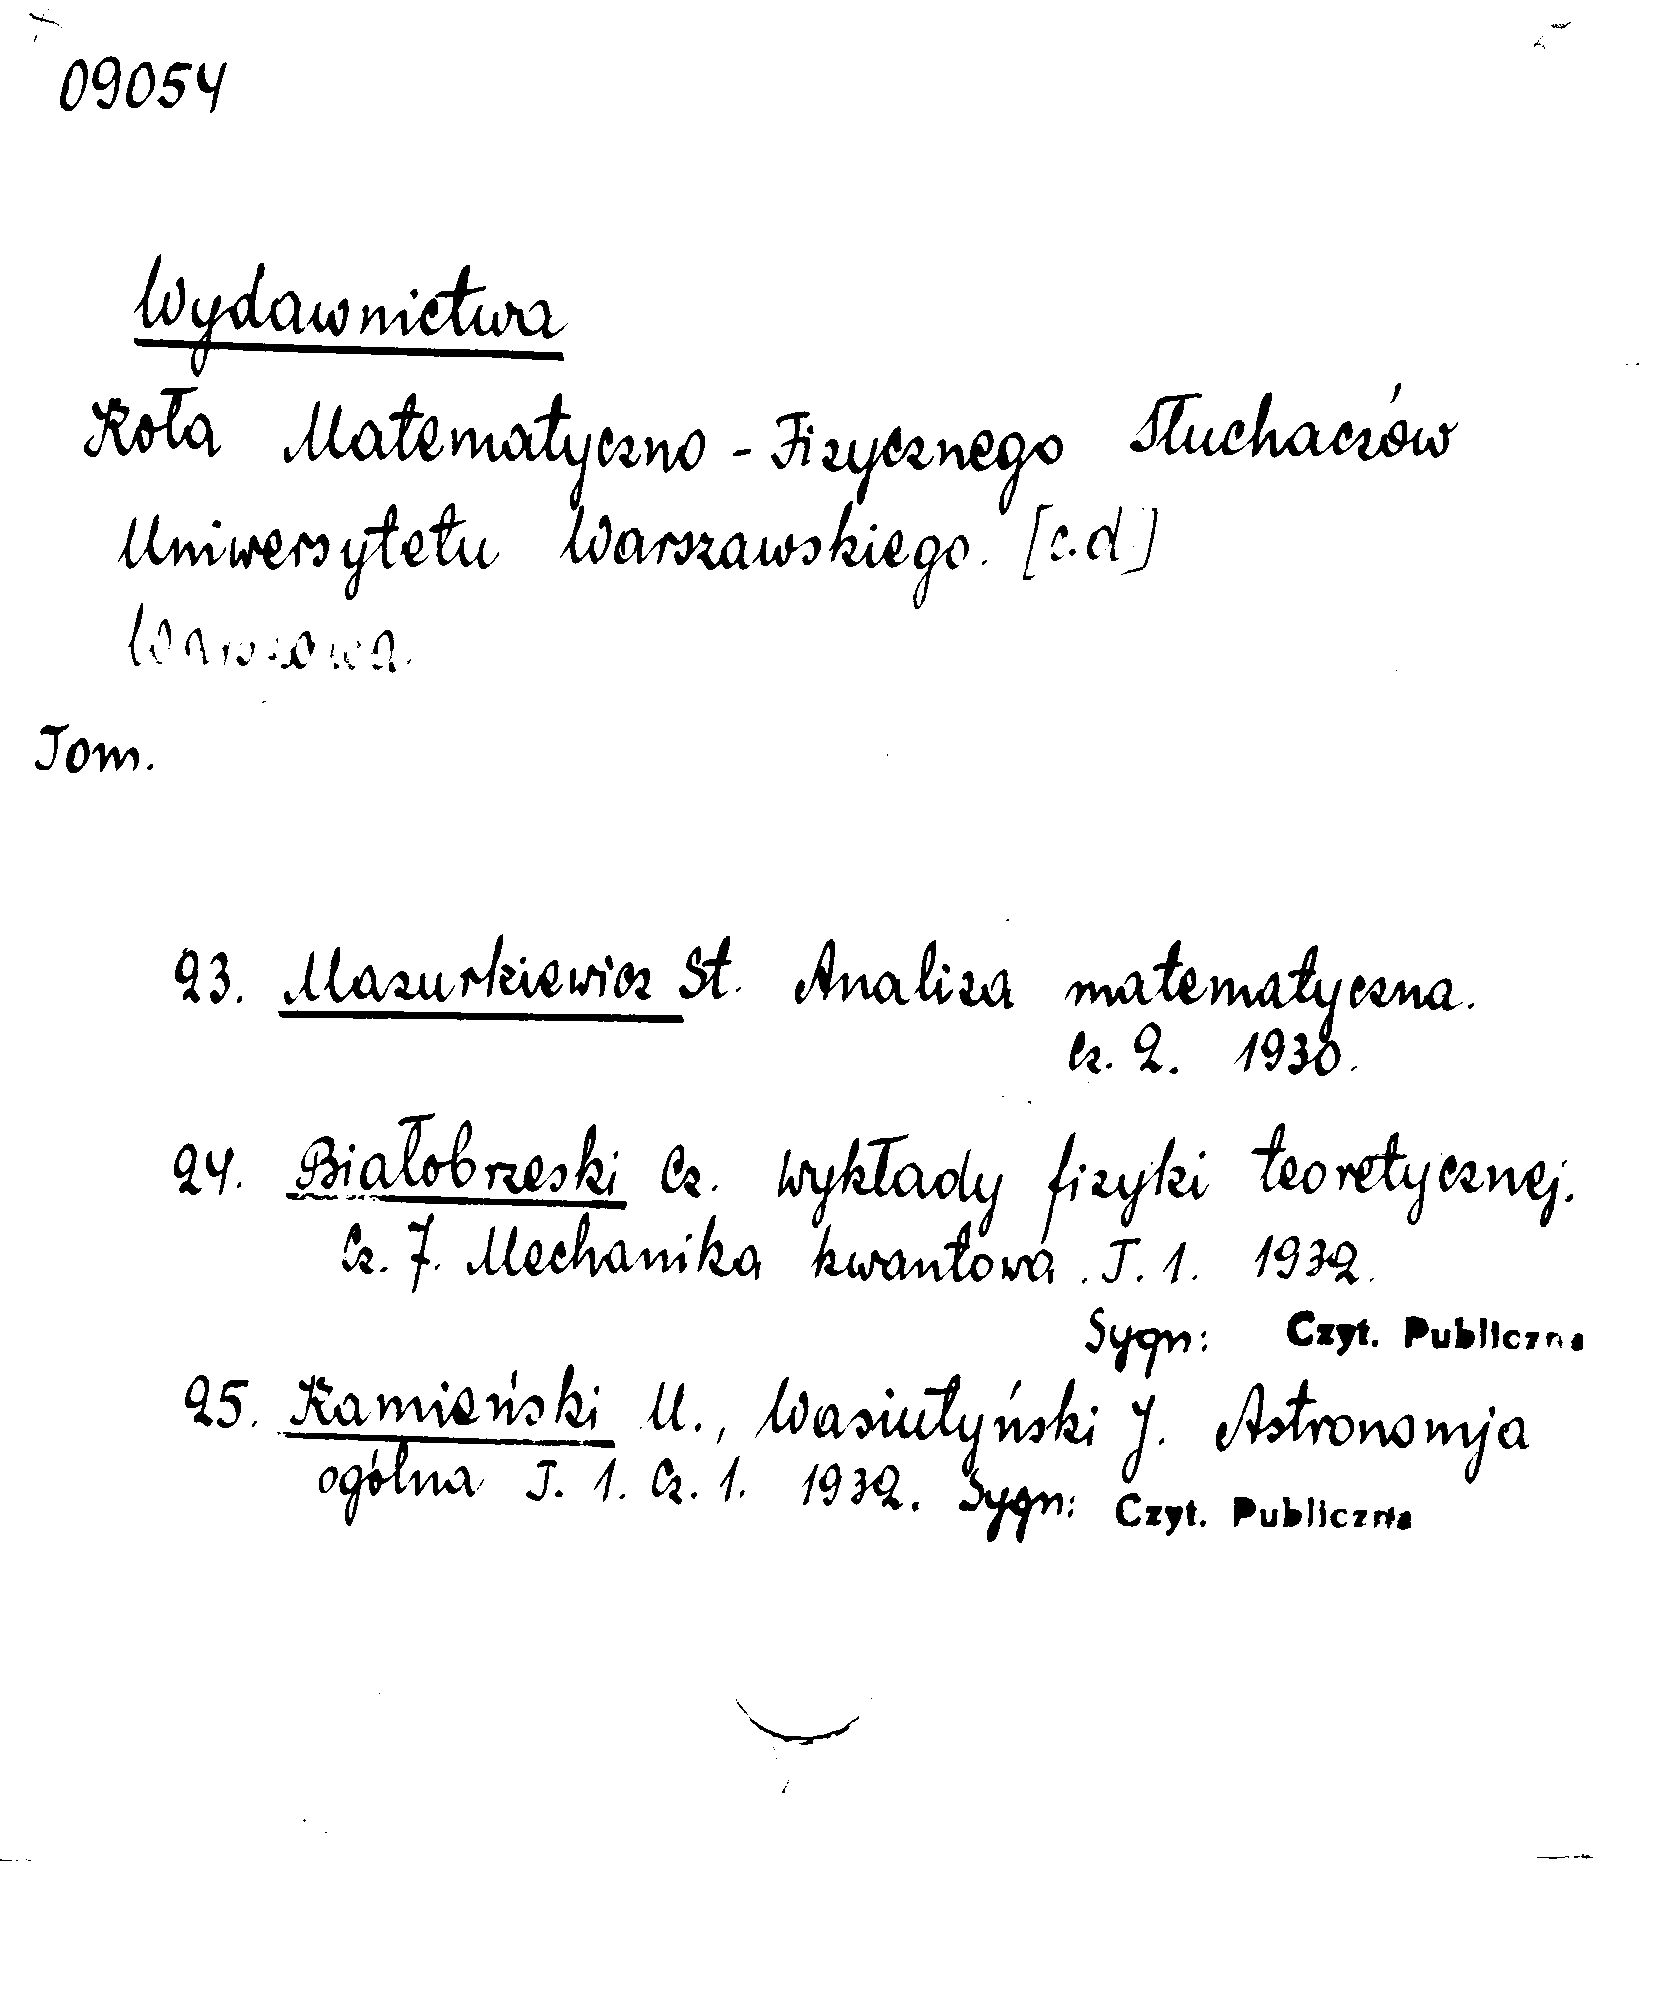 09054
Wydawnictwa
Koła Matematyczno - Fizycznego Słuchaczów
Uniwersytetu Warszawskiego. [c.d.]
Warszawa.
Tom.
23. Mazurkiewicz St. Analiza matematyczna.
Cz. 2. 1930.
24. Białobrzeski Cz. Wykłady fizyki teoretycznej.
Cz. 7. Mechanika kwantowa. T. 1. 1932.
Sygn: Czyt. Publiczna
25. Kamieński M., Wasiutyński J. Astronomja
ogólna T. 1. Cz. 1. 1932. Sygn: Czyt. Publiczna